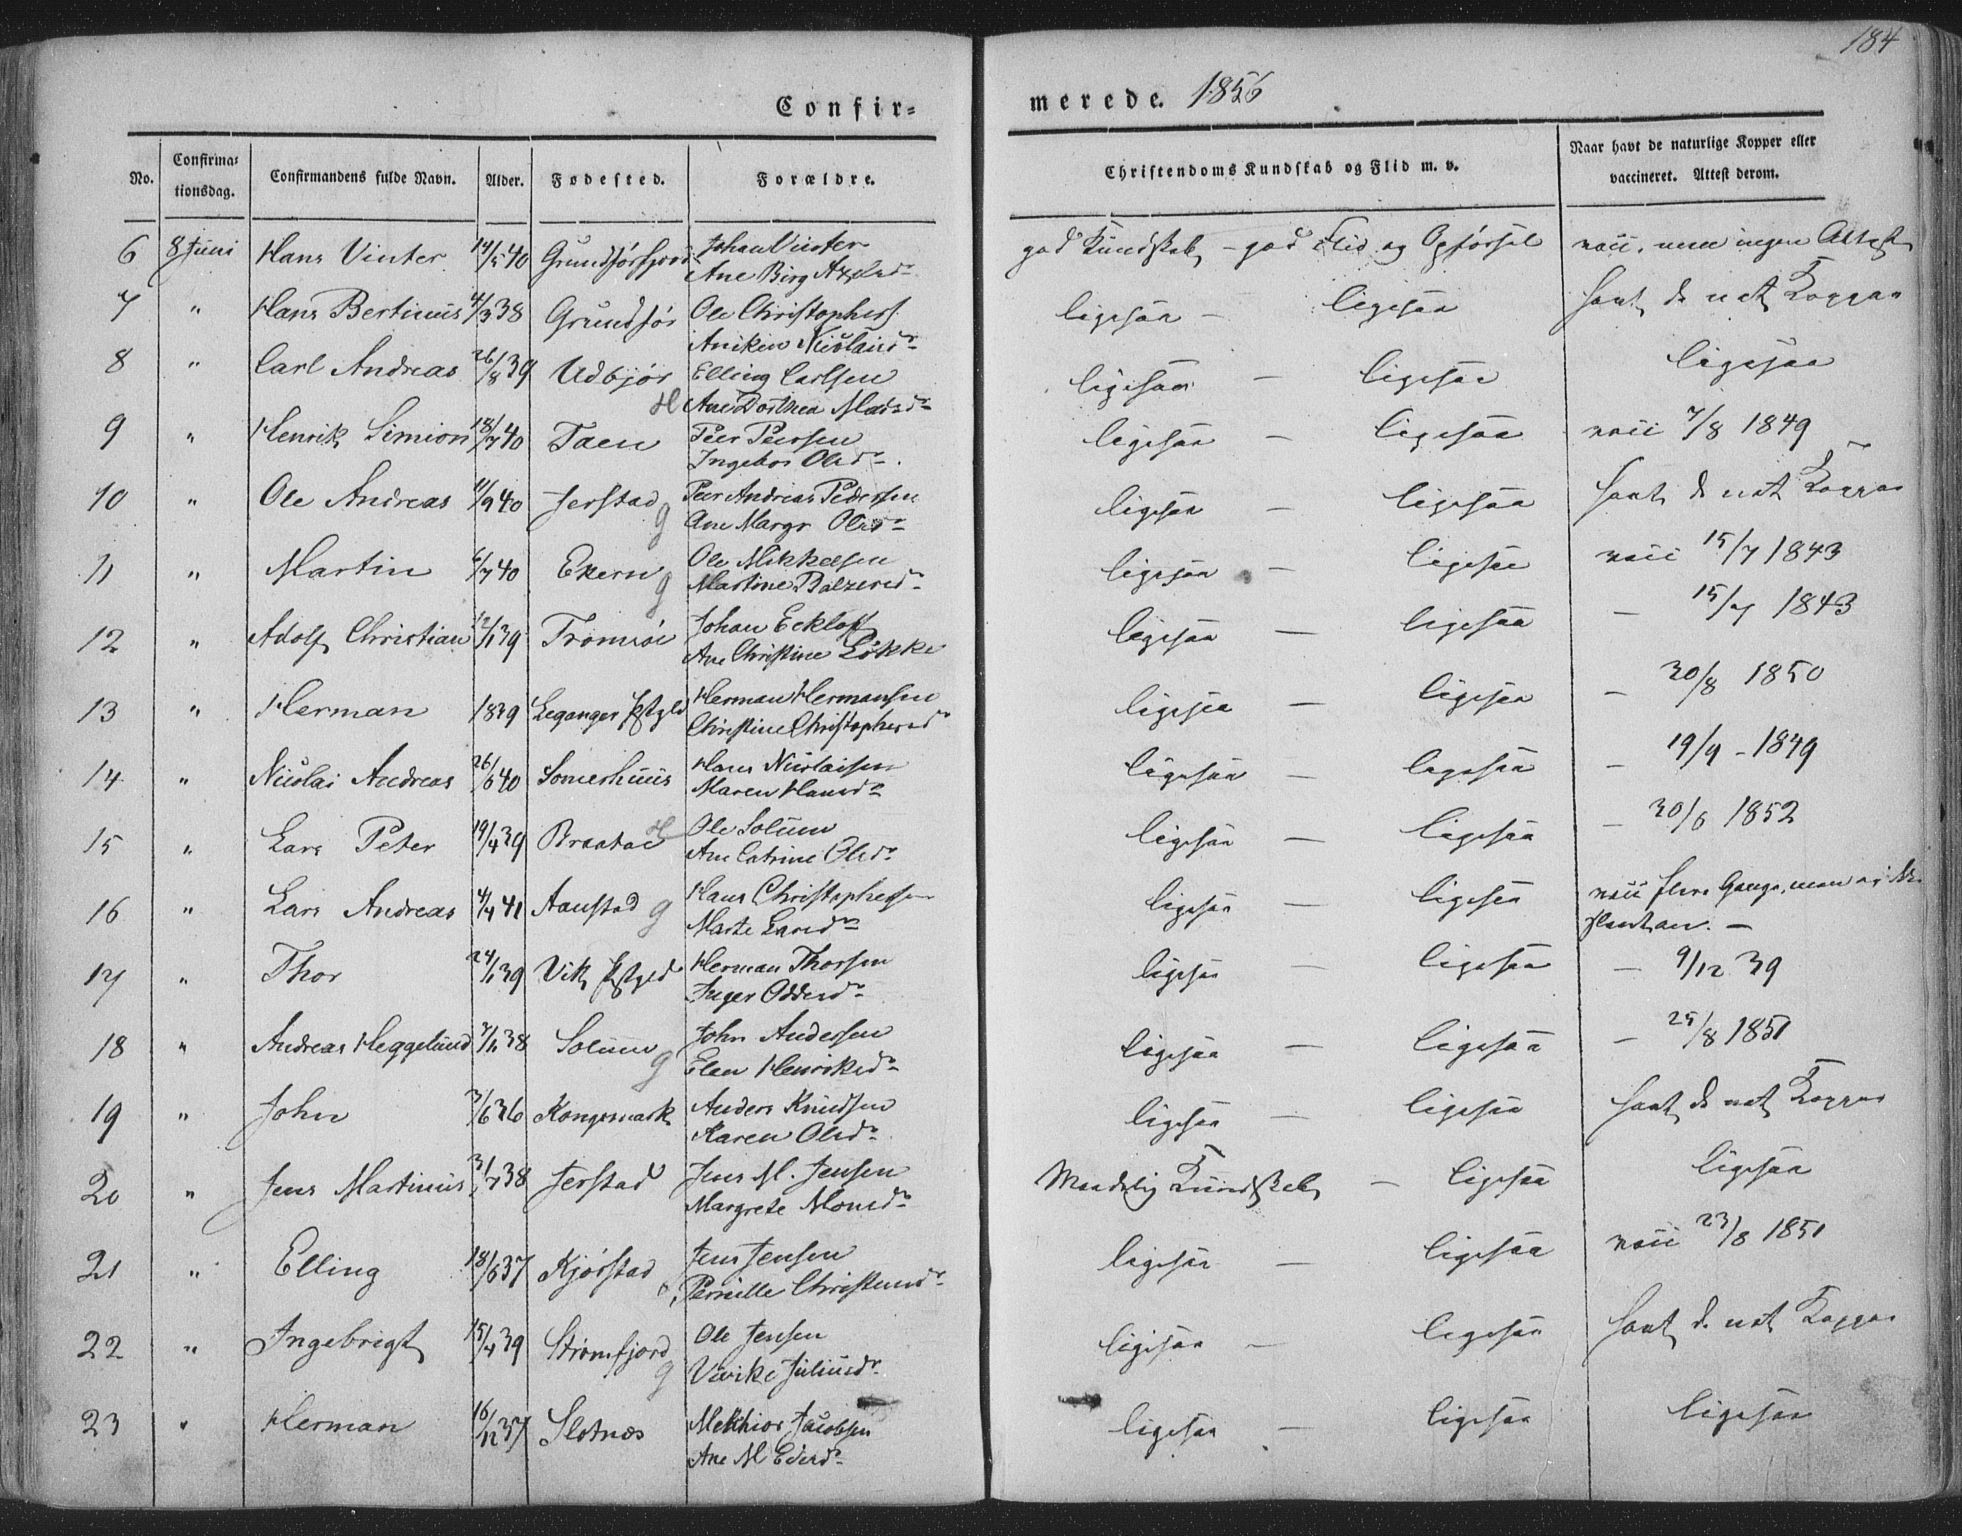 184
Confir=
merede. 1856
No.
Confirma=
tionsdag.
Confirmandens fulde Navn.
Alder.
Fødested.
Forældre.
Christendoms Kundskab og Flid m. v.
Naar havt de naturlige Kopper eller
vaccineret. Attest derom.
6 8 Juni Hans Vinter 14/5 40 Grundførfjord Johan Vinter god Kundskab – god Flid og Opførsel vacc. men ingen Attest
Ane Birg Axelsdr
7 " Hans Bertinus 4/3 38 Grundfør Ole Christophers. ligesaa – ligesaa havt de nat Kopper
Aniken Nicolaisdr
8 " Carl Andreas 26/8 39 Udbjør Elling Carlsen ligesaa – ligesaa ligesaa
H Ane Dorthea Madsdr
9 " Henrik Simion 18/7 40 Taen Peer Peersen ligesaa – ligesaa vacc 7/8 1849
Ingebor Olsdr.
10 " Ole Andreas 11/9 40 Jerstad g Peer Andreas Pedersen ligesaa – ligesaa havt de nat Kopper
Ane Margr Olsdr
11 " Martin 6/7 40 Ekern g Ole Mikkelsen ligesaa – ligesaa vacc 15/7 1843
Martine Balzersdr
12 " Adolf Christian 12/1 39 Tromsøe Johan Ecklof ligesaa – ligesaa – 15/7 1843
Ane Christine Løkke
13 " Herman 1839 Leganger Pstgld Herman Hermansen ligesaa – ligesaa – 30/8 1850
Christine Christophersdr
14 " Nicolai Andreas 26/6 40 Somerhuus Hans Nicolaisen ligesaa – ligesaa – 19/9 – 1849
Maren Hansdr
15 " Lars Peter 19/4 39 Braatøe H Ole Solum ligesaa – ligesaa – 30/6 1852
Ane Catrine Olsdr
16 " Lars Andreas 4/4 41 Aanstad g Hans Christophersen ligesaa – ligesaa vacc flere Gange, men
Marte Larsdr –
17 " Thor 24/1 39 Vik Pstgld Herman Thorsen ligesaa – ligesaa – 9/12 39
Inger Oddsdr
18 " Andreas Heggelund 3/11 38 Solum g John Andersen ligesaa – ligesaa – 25/8 1851
Elen Henriksdr
19 " John 3/6 36 Kongsmark Anders Knudsen ligesaa – ligesaa havt de nat Kopper
Karen Olsdr
20 " Jens Martinus 3/7 38 Jerstad Jens M. Jensen Maadelig Kundskab – ligesaa ligesaa
Margrete Monsdr
21 " Elling 18/6 37 Kjørstad Jens Jensen ligesaa – ligesaa vacc 23/8 1851
Pernille Christensdr
22 " Ingebrigt 15/4 39 Strømfjord g Ole Jensen ligesaa – ligesaa havt de nat Kopper
Vivike Juliusdr
23 " Herman 16/12 37 Slotnæs Melkhior Jacobsen ligesaa – ligesaa ligesaa
Ane M Edersdr